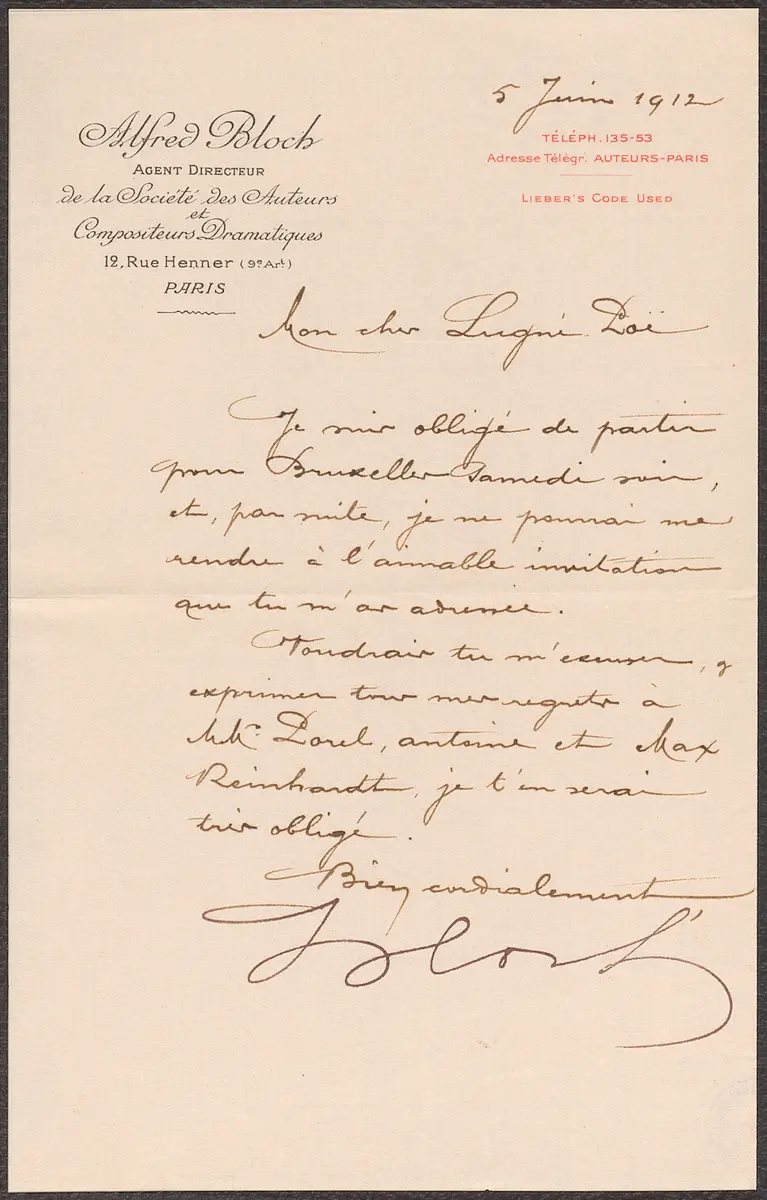 5 Juin 1912
Alfred Bloch
AGENT DIRECTEUR
de la Société des Auteurs
et
Compositeurs Dramatiques
12, Rue Henner (9e Art)
PARIS
TÉLÉPH. 135-53
Adresse Télégr. AUTEURS-PARIS
LIEBER'S CODE USED
Mon cher Lugné Poë
Je suis obligé de partir
pour Bruxelles Samedi soir,
et, par suite, je ne pourrai me
rendre à l'aimable invitation
que tu m'as adressée.
Voudrais tu m'excuser,
exprimer tous mes regrets à
MM. Porel, Antoine et Max
Reinhardt, je t'en serai
très obligé.
Bien cordialement
Bloch